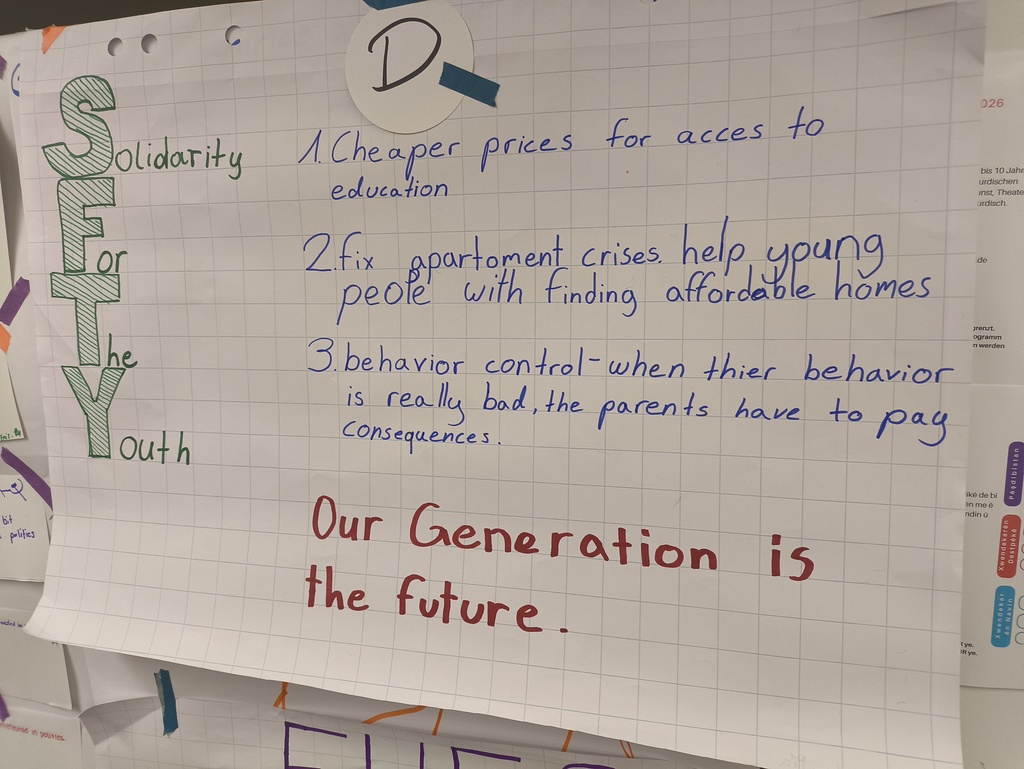 D
Solidarity
For
The
Youth
1. Cheaper prices for acces to
education
2. fix apartoment crises. help young
peole with finding affordable homes
3. behavior control - when thier behavior
is really bad, the parents have to pay
consequences.
Our Generation is
the future.
026
bis 10 Jahr
urdischen
unst, Theate
urdisch.
.de
grenzt.
ogramm
n werden
Pêşdibistan
ikê de bi
en me ê
ndin û
Xwendekarên
Destpêkê
Xwendekar
ên Navîn
bit
politics
in politics.